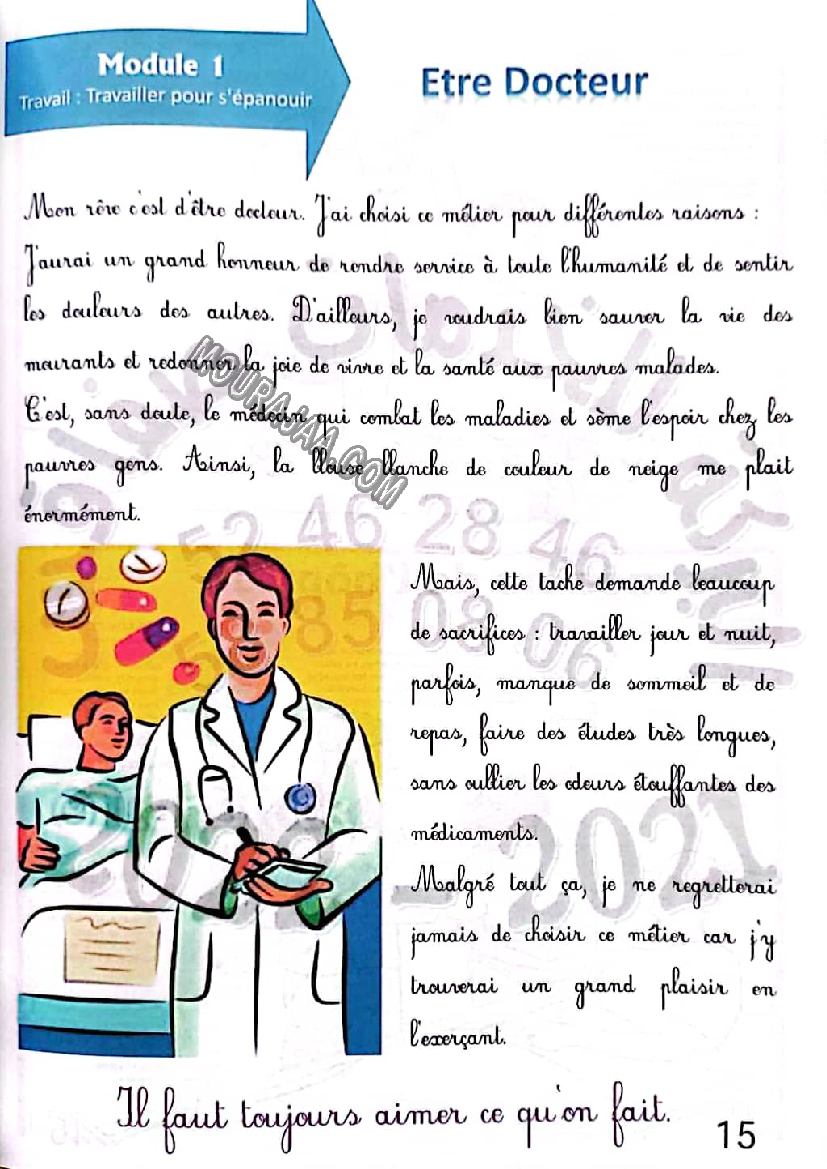 Module 1
Travail : Travailler pour s'épanouir
Etre Docteur
Mon rêve c'est d'être docteur. J'ai choisi ce métier pour différentes raisons :
J'aurai un grand honneur de rendre service à toute l'humanité et de sentir
les douleurs des autres. D'ailleurs, je voudrais bien sauver la vie des
mourants et redonner la joie de vivre et la santé aux pauvres malades.
C'est, sans doute, le médecin qui combat les maladies et sème l'espoir chez les
pauvres gens. Ainsi, la blouse blanche de couleur de neige me plait
énormément.
MOURAJAA.COM
52 46 28 46
85 08 06
Mais, cette tache demande beaucoup
de sacrifices : travailler jour et nuit,
parfois, manque de sommeil et de
repas, faire des études très longues,
sans oublier les odeurs étouffantes des
médicaments.
2021
Malgré tout ça, je ne regretterai
jamais de choisir ce métier car j'y
trouverai un grand plaisir en
l'exerçant.
Il faut toujours aimer ce qu'on fait.
15